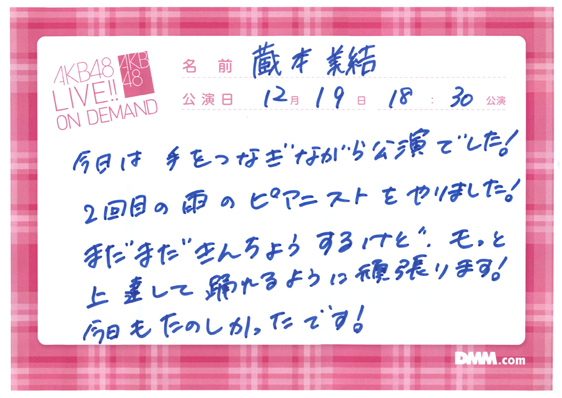 AKB48
LIVE!!
ON DEMAND
AKB
48
名前 蔵本美結
公演日 12月19日 18:30公演
今日は手をつなぎながら公演でした!
2回目の雨のピアニストをやりました!
まだまだきんちょうするけど、もっと
上達して踊れるように頑張ります!
今日もたのしかったです!
DMM.com